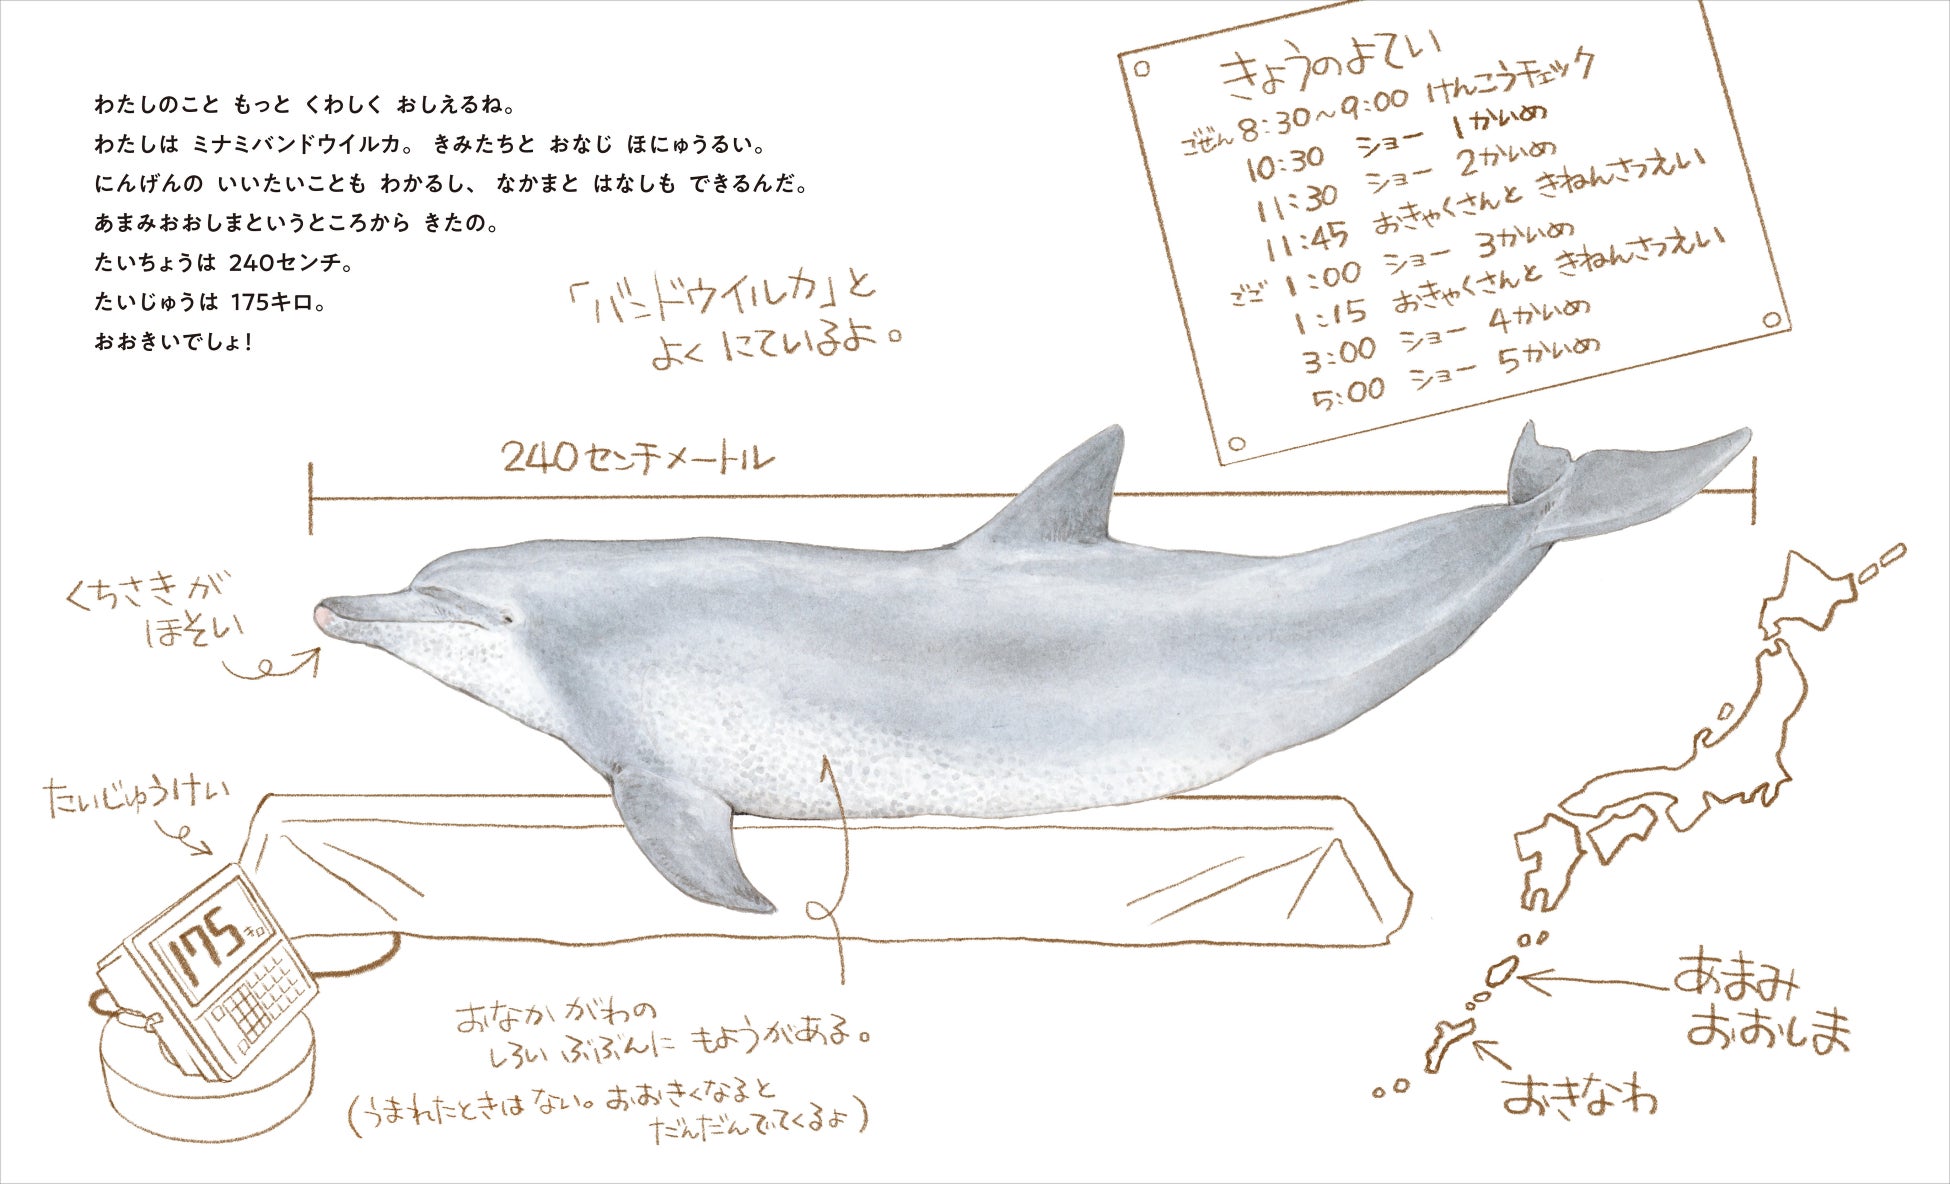 わたしのこと もっと くわしく おしえるね。
わたしは ミナミバンドウイルカ。 きみたちと おなじ ほにゅうるい。
にんげんの いいたいことも わかるし、 なかまと はなしも できるんだ。
あまみおおしまというところから きたの。
たいちょうは 240センチ。
たいじゅうは 175キロ。
おおきいでしょ！
「バンドウイルカ」と
よく にているよ。
きょうのよてい
ごぜん 8:30～9:00 けんこうチェック
10:30 ショー 1かいめ
11:30 ショー 2かいめ
11:45 おきゃくさんと きねんさつえい
ごご 1:00 ショー 3かいめ
1:15 おきゃくさんと きねんさつえい
3:00 ショー 4かいめ
5:00 ショー 5かいめ
240センチメートル
くちさきが
ほそい
たいじゅうけい
175キロ
おなかがわの
しろい ぶぶんに もようがある。
(うまれたときは ない。おおきくなると
だんだんでてくるよ)
あまみ
おおしま
おきなわ